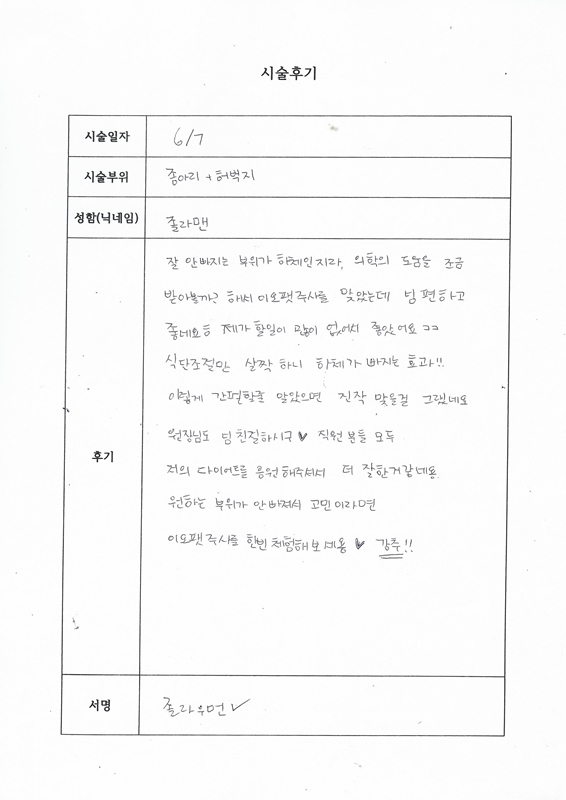 시술후기
시술일자 6/7
시술부위 종아리 + 허벅지
성함(닉네임) 졸라맨
후기
잘 안빠지는 부위가 하체인지라, 의학의 도움을 조금
받아볼까? 해서 이오팻주사를 맞았는데 넘 편하고
좋네요ㅎ 제가 할일이 많이 없어서 좋았어요 ㅋㅋ
식단조절만 살짝 하니 하체가 빠지는 효과!!
이렇게 간편할줄 알았으면 진작 맞을걸 그랬네요
원장님도 넘 친절하시구 ♥ 직원분들 모두
저의 다이어트를 응원해주셔서 더 잘한거같네용
원하는 부위가 안빠져서 고민이라면
이오팻주사를 한번 체험해보세용 ♥ 강추!!
서명 졸라우먼 ✓